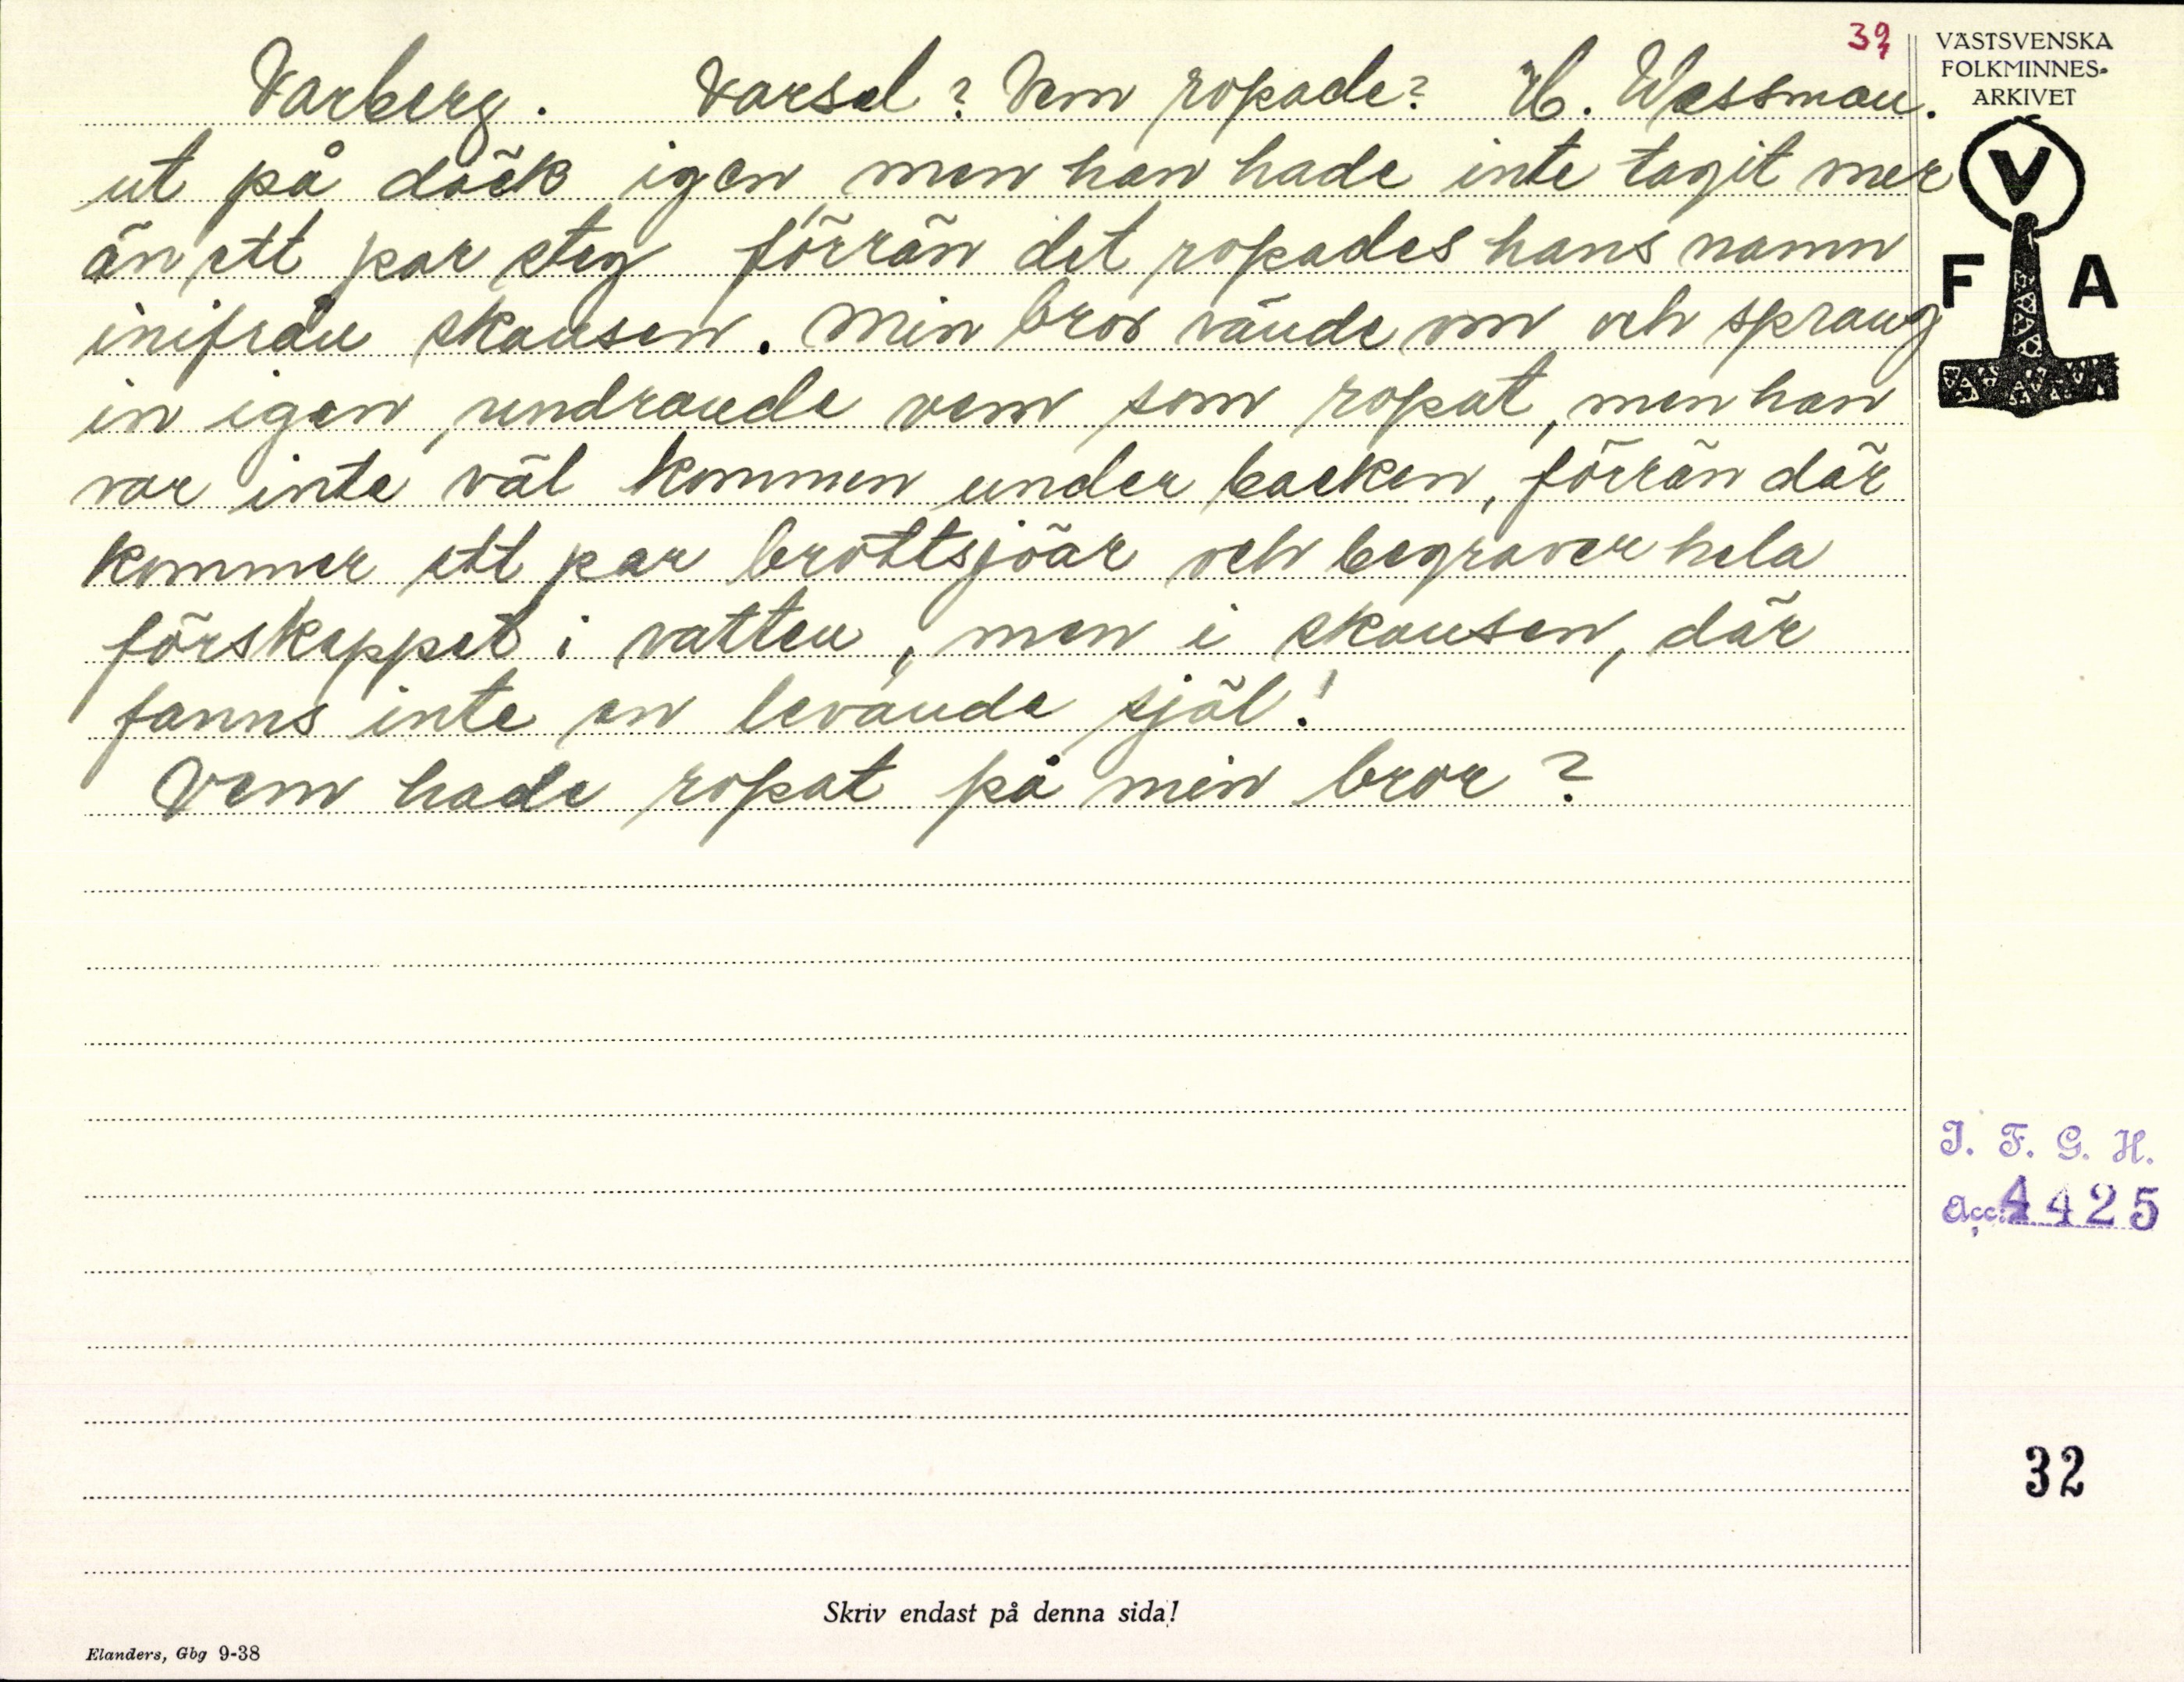 39
Varberg. Varsel? Vem ropade? H. Wessman.
ut på däck igen men han hade inte tagit mer
än ett par steg förrän det ropades hans namn
inifrån skansen. Min bror vände om och sprang
in igen, undrande vem som ropat, men han
var inte väl kommen under backen, förrän där
kommer ett par brottsjöar och begraver hela
förskeppet i vatten, men i skansen, där
fanns inte en levande själ!
Vem hade ropat på min bror?
VÄSTSVENSKA
FOLKMINNES-
ARKIVET
V
F A
I. F. G. H.
Acc. 4425
32
Skriv endast på denna sida!
Elanders, Gbg 9-38